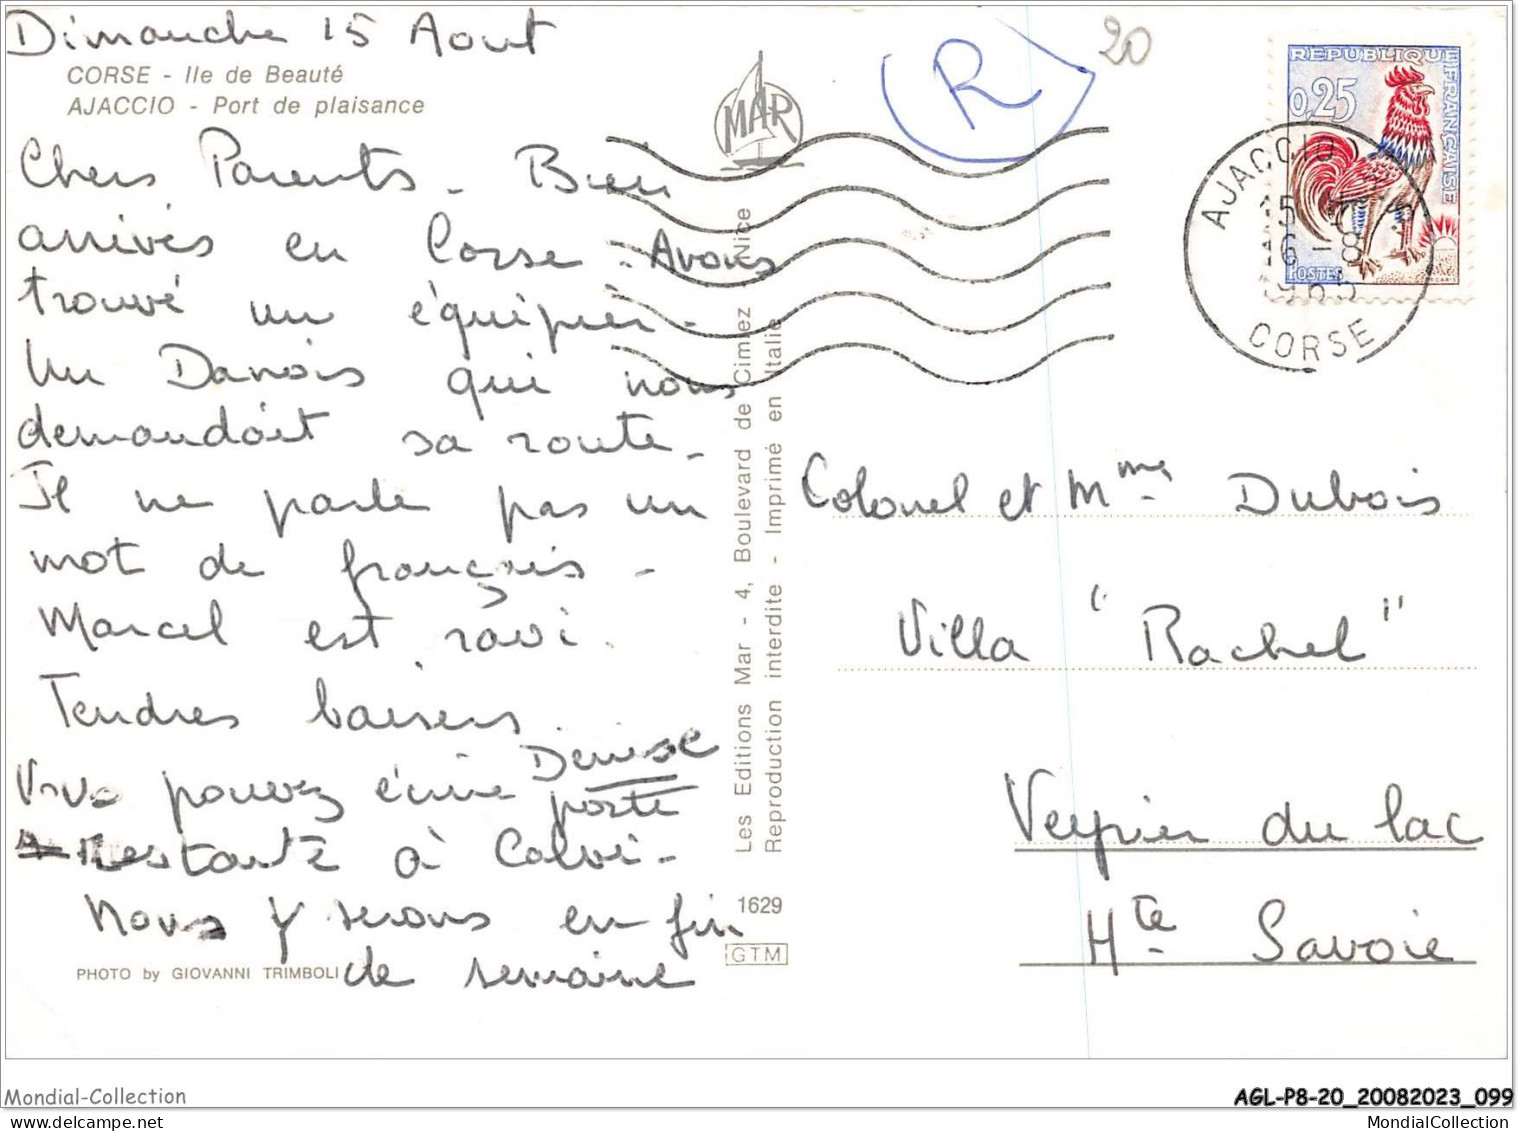 Dimanche 15 Aout
CORSE - Ile de Beauté
AJACCIO - Port de plaisance
Chers Parents - Bien
arrivés en Corse - Avons
trouvé un équipier -
Un Danois qui nous
demandait sa route -
Il ne parle pas un
mot de français -
Marcel est ravi.
Tendres baisers
Denise
Vous pouvez écrire poste
restante à Calvi -
Nous y serons en fin
de semaine
PHOTO by GIOVANNI TRIMBOLI
MAR
Les Editions Mar - 4, Boulevard de Cimiez - Nice
Reproduction interdite - Imprimé en Italie
1629
GTM
R
20
REPUBLIQUE FRANÇAISE
0,25
POSTES
AJACCIO
15 H
16 - 8
1965
CORSE
Colonel et Mme Dubois
Villa "Rachel"
Veyrier du lac
Hte Savoie
Mondial-Collection
AGL-P8-20_20082023_099
MondialCollection